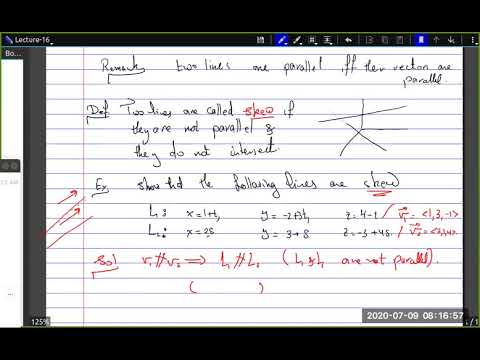 Lecture-16
Bo...
Remark two lines are parallel iff their vectors are
parallel.
Def Two lines are called skew if
they are not parallel &
they do not intersect.
Ex Show that the following lines are skew
L₁: x=1+t, y=-2+3t, z=4-t / v₁ = <1,3,-1>
L₂: x=2s y=3+s z=-3+4s. / v₂ = <2,1,4>
Sol v₁ ∦ v₂ ⟹ L₁ ∦ L₂ (L₁ & L₂ are not parallel).
( )
125%
2020-07-09 08:16:57